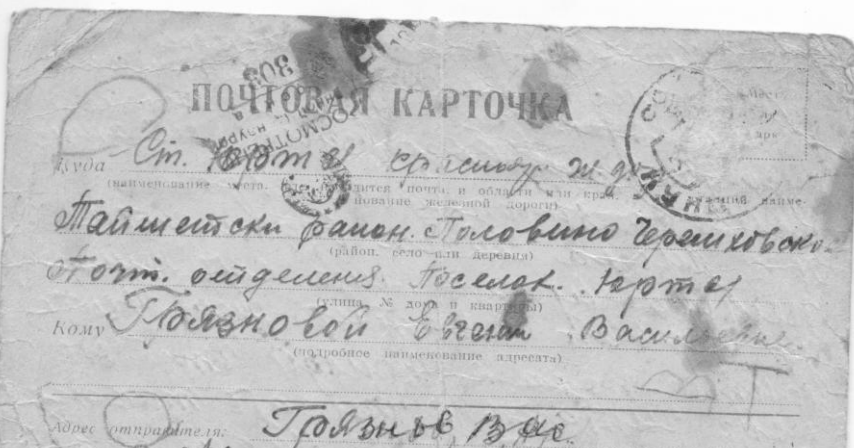 ПОЧТОВАЯ КАРТОЧКА
Куда Ст. Юрты Краснояр ж д
(наименование места, где находится почта, и области или края,
нование железной дороги)
Тайшетски район. Половино Черемховско
(район, село или деревня)
Почт. отделения. Поселок. Юрты
(улица, № дома и квартиры)
Кому Грязновой Евгени Васильевне
(подробное наименование адресата)
Адрес отправителя: Грязнов Вас.